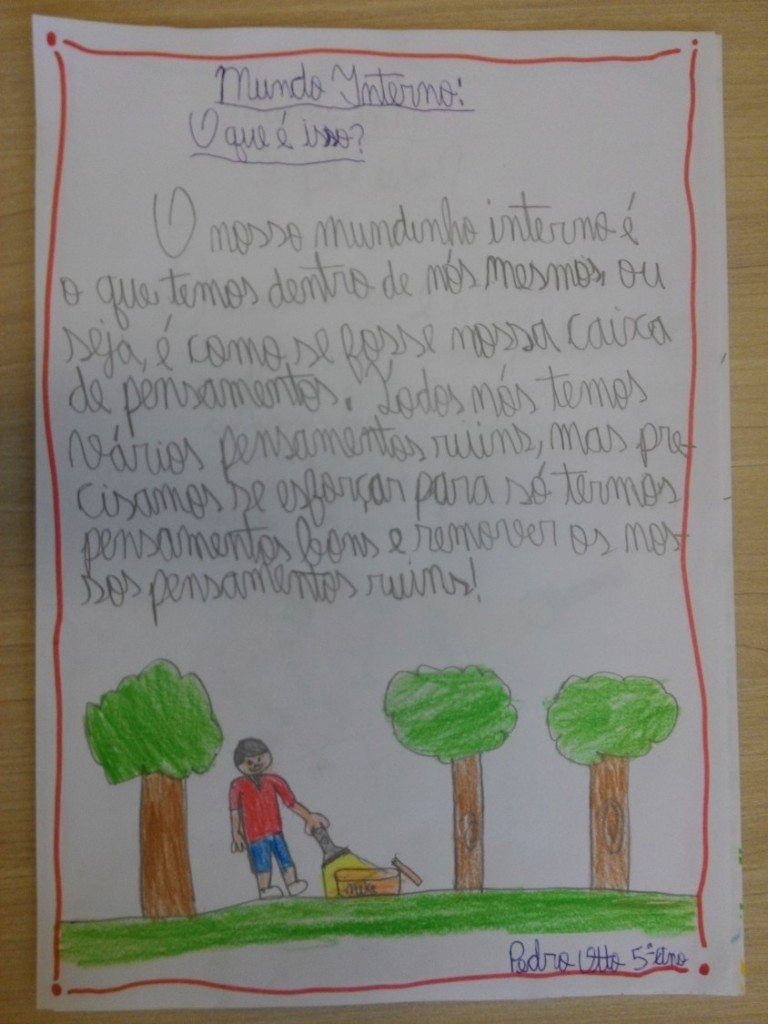 Mundo Interno:
O que é isso?
O nosso mundinho interno é
o que temos dentro de nós mesmos, ou
seja, é como se fosse nossa caixa
de pensamentos. Todos nós temos
vários pensamentos ruins, mas pre-
cisamos se esforçar para só termos
pensamentos bons e remover os nos-
sos pensamentos ruins!
Nike
Pedro Otto 5º ano